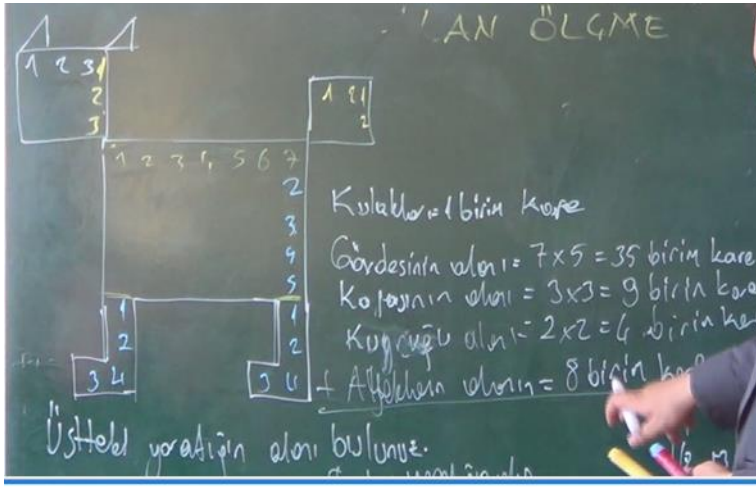 ALAN ÖLÇME
1 2 3 1
2
3
1 2 1
2
1 2 3 4 5 6 7
2
3
4
5
1 1
2 2
3 4 3 4
Kulakları=1 birim kare
Gövdesinin alanı= 7x5=35 birim kare
Kafasının alanı = 3x3=9 birim kare
Kuyruğu alanı= 2x2=4 birim kare
+ Ayakların alanın= 8 birim
Üstteki yaratığın alanı bulunuz.